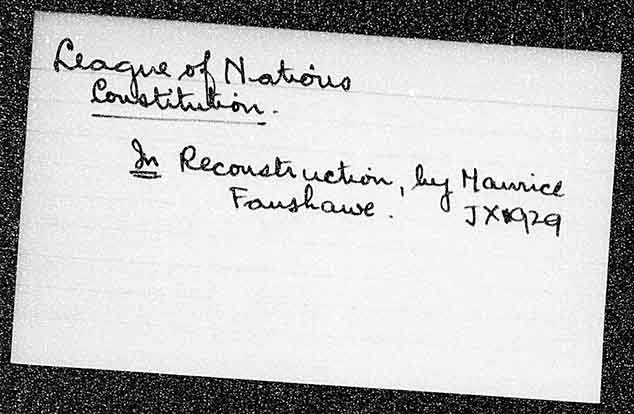 League of Nations
Constitution.
In Reconstruction, by Maurice
Fanshawe. JX1929